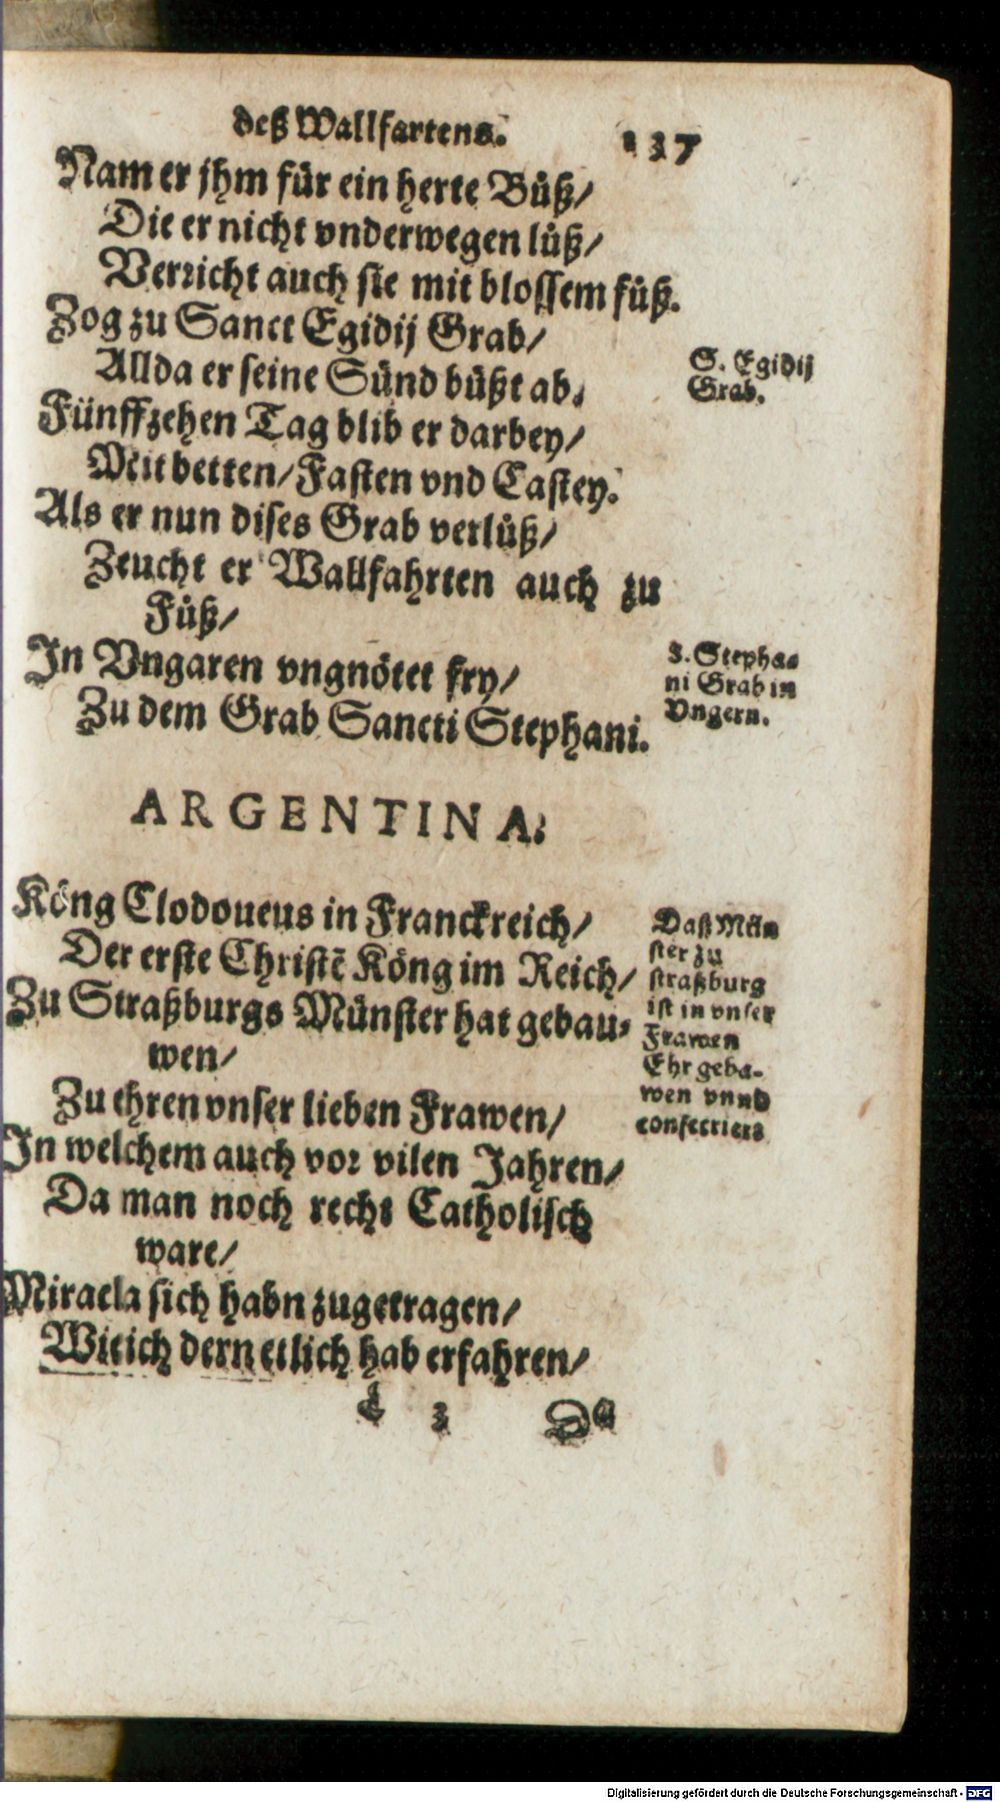 deß Wallfartens. 137
Nam er jhm für ein herte Büß/
Die er nicht vnderwegen lüß/
Verzicht auch sie mit blossem füß.
Zog zu Sanct Egidij Grab/
Allda er seine Sünd büßt ab.
S. Egidij
Grab.
Fünffzehen Tag blib er darbey/
Mit betten/ Fasten vnd Castey.
Als er nun dises Grab verlüß/
Zeucht er Wallfahrten auch zu
Füß/
In Vngaren vngnötet fry/
Zu dem Grab Sancti Stephani.
S. Stepha-
ni Grab in
Vngern.
ARGENTINA.
Köng Clodoueus in Franckreich/
Der erste Christē Köng im Reich/
Zu Straßburgs Münster hat gebau-
wen/
Zu ehren vnser lieben Frawen/
In welchem auch vor vilen Jahren/
Da man noch recht Catholisch
ware/
Miracla sich habn zugetragen/
Wie ich dern etlich hab erfahren/
Daß Mün
ster zu
straßburg
ist in vnser
Frawen
Ehr geba-
wen vnnd
consecriert
3 Da
Digitalisierung gefördert durch die Deutsche Forschungsgemeinschaft - DFG